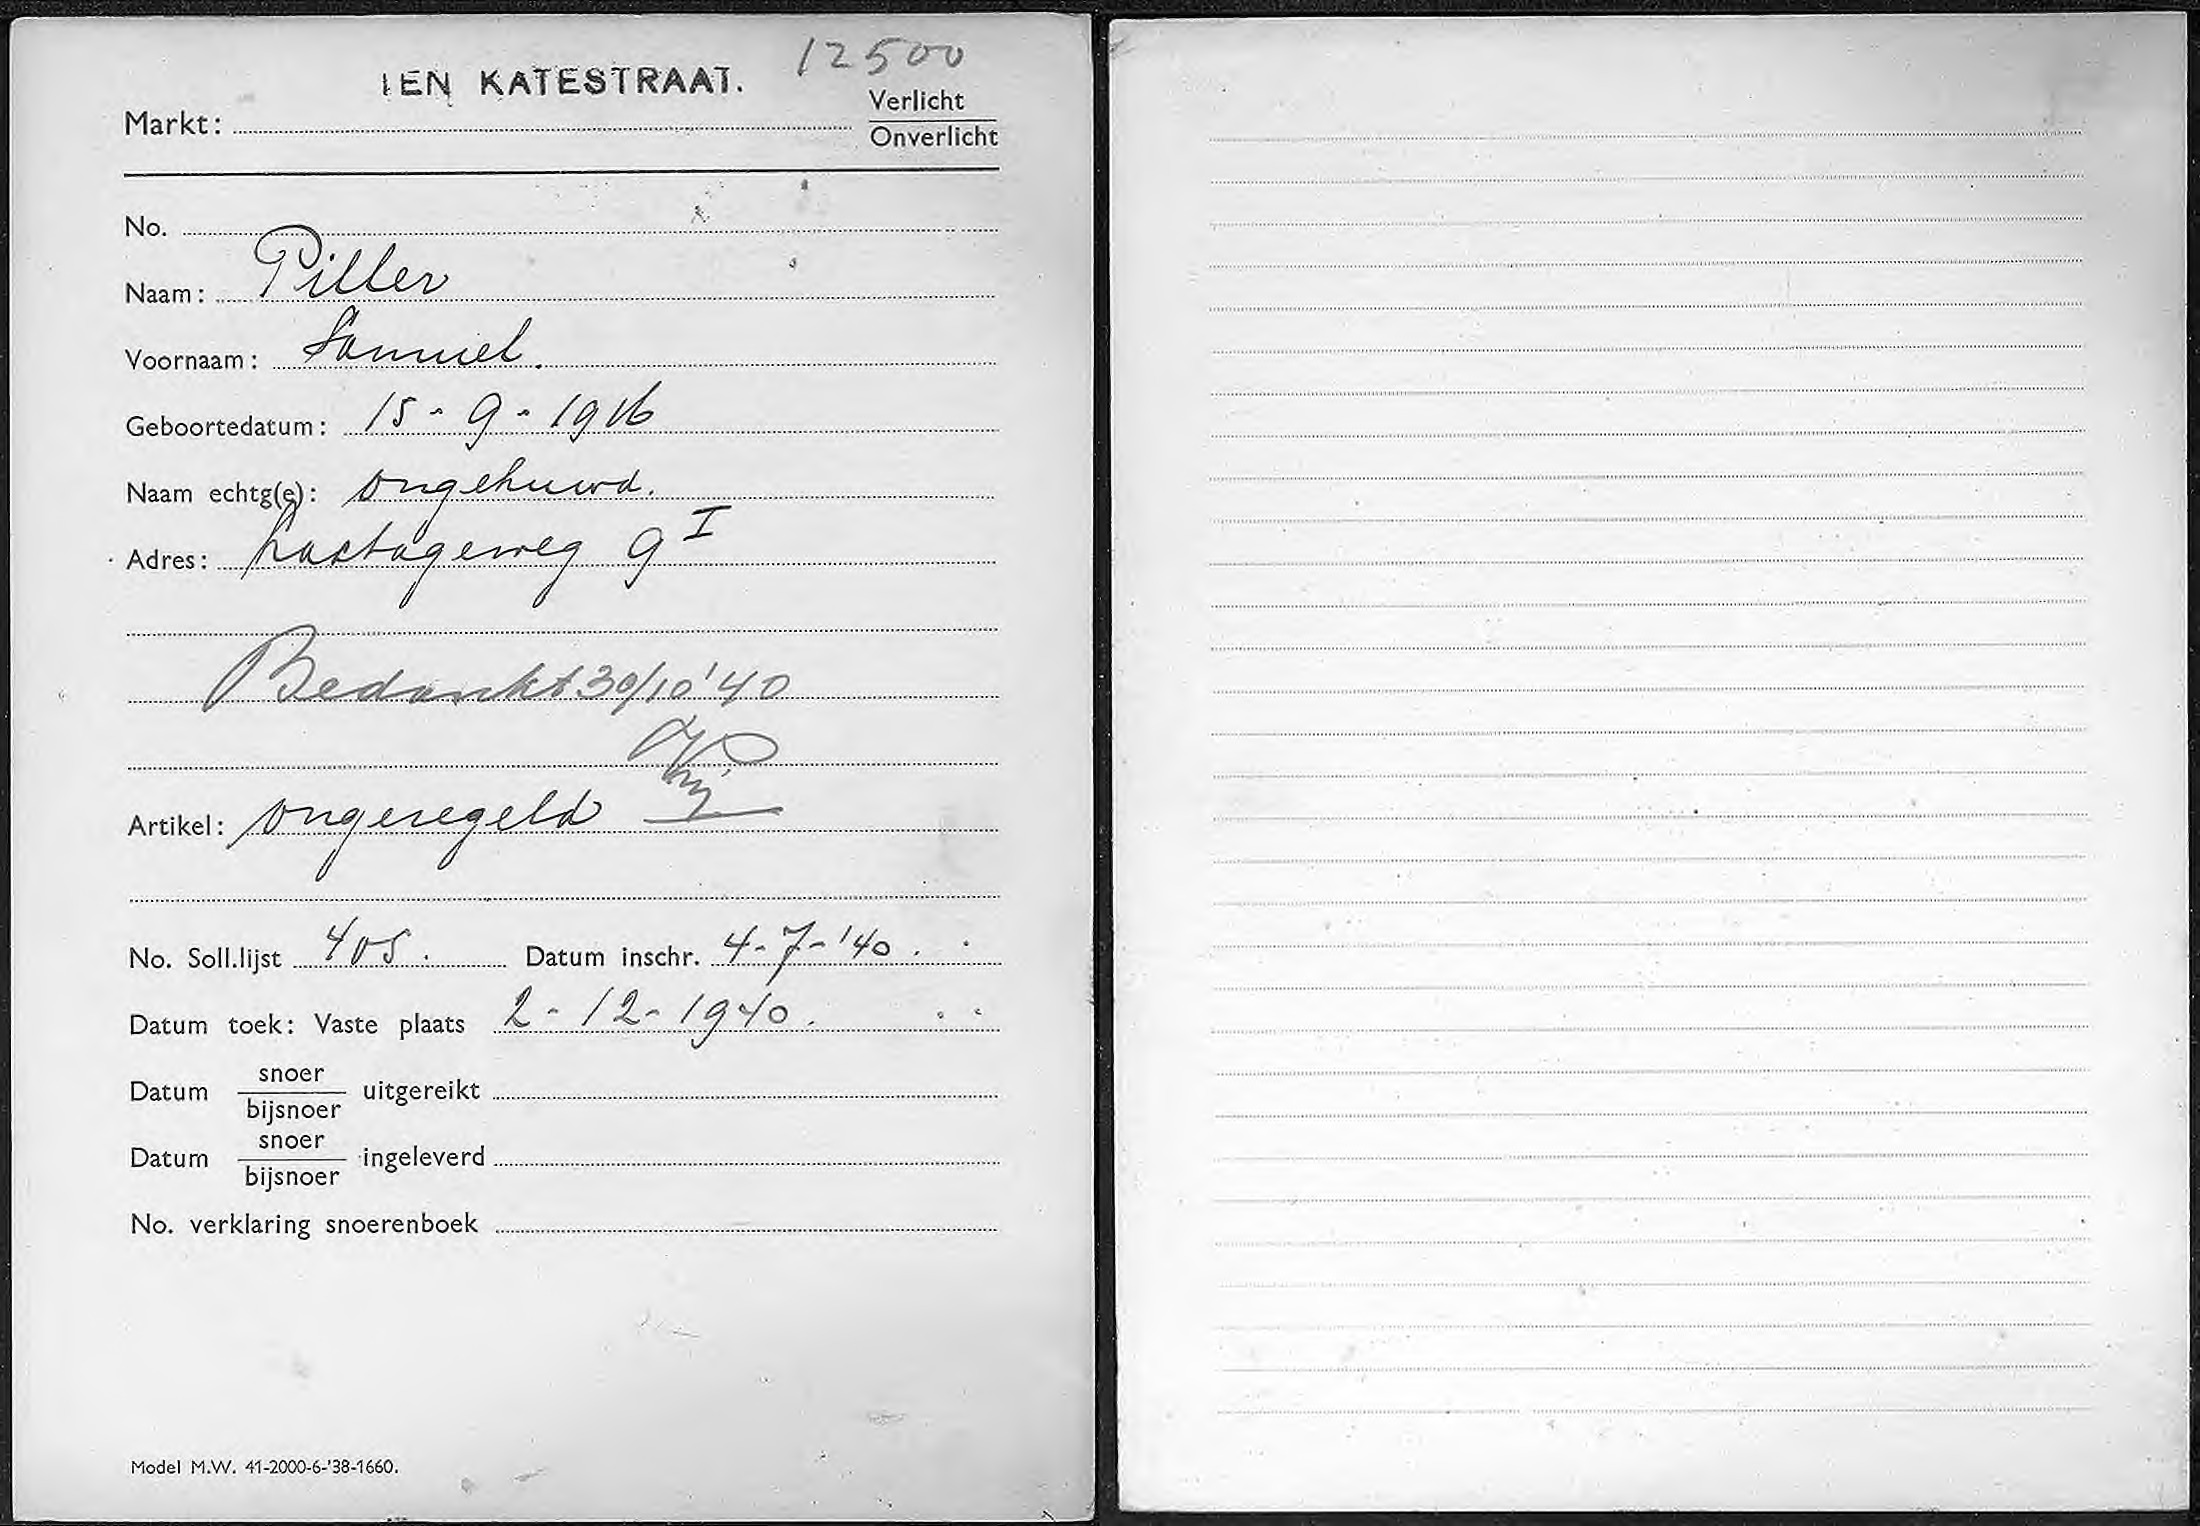 12500
TEN KATESTRAAT.
Markt:
Verlicht
Onverlicht
No.
Naam: Piller
Voornaam: Samuel.
Geboortedatum: 15-9-1916
Naam echtg(e): ongehuwd.
Adres: Lastageweg 9 I
Bedankt 30/10 '40
Artikel: ongeregeld
No. Soll.lijst 405. Datum inschr. 4-7-'40.
Datum toek: Vaste plaats 2-12-1940.
Datum snoer/bijsnoer uitgereikt
Datum snoer/bijsnoer ingeleverd
No. verklaring snoerenboek
Model M.W. 41-2000-6-'38-1660.